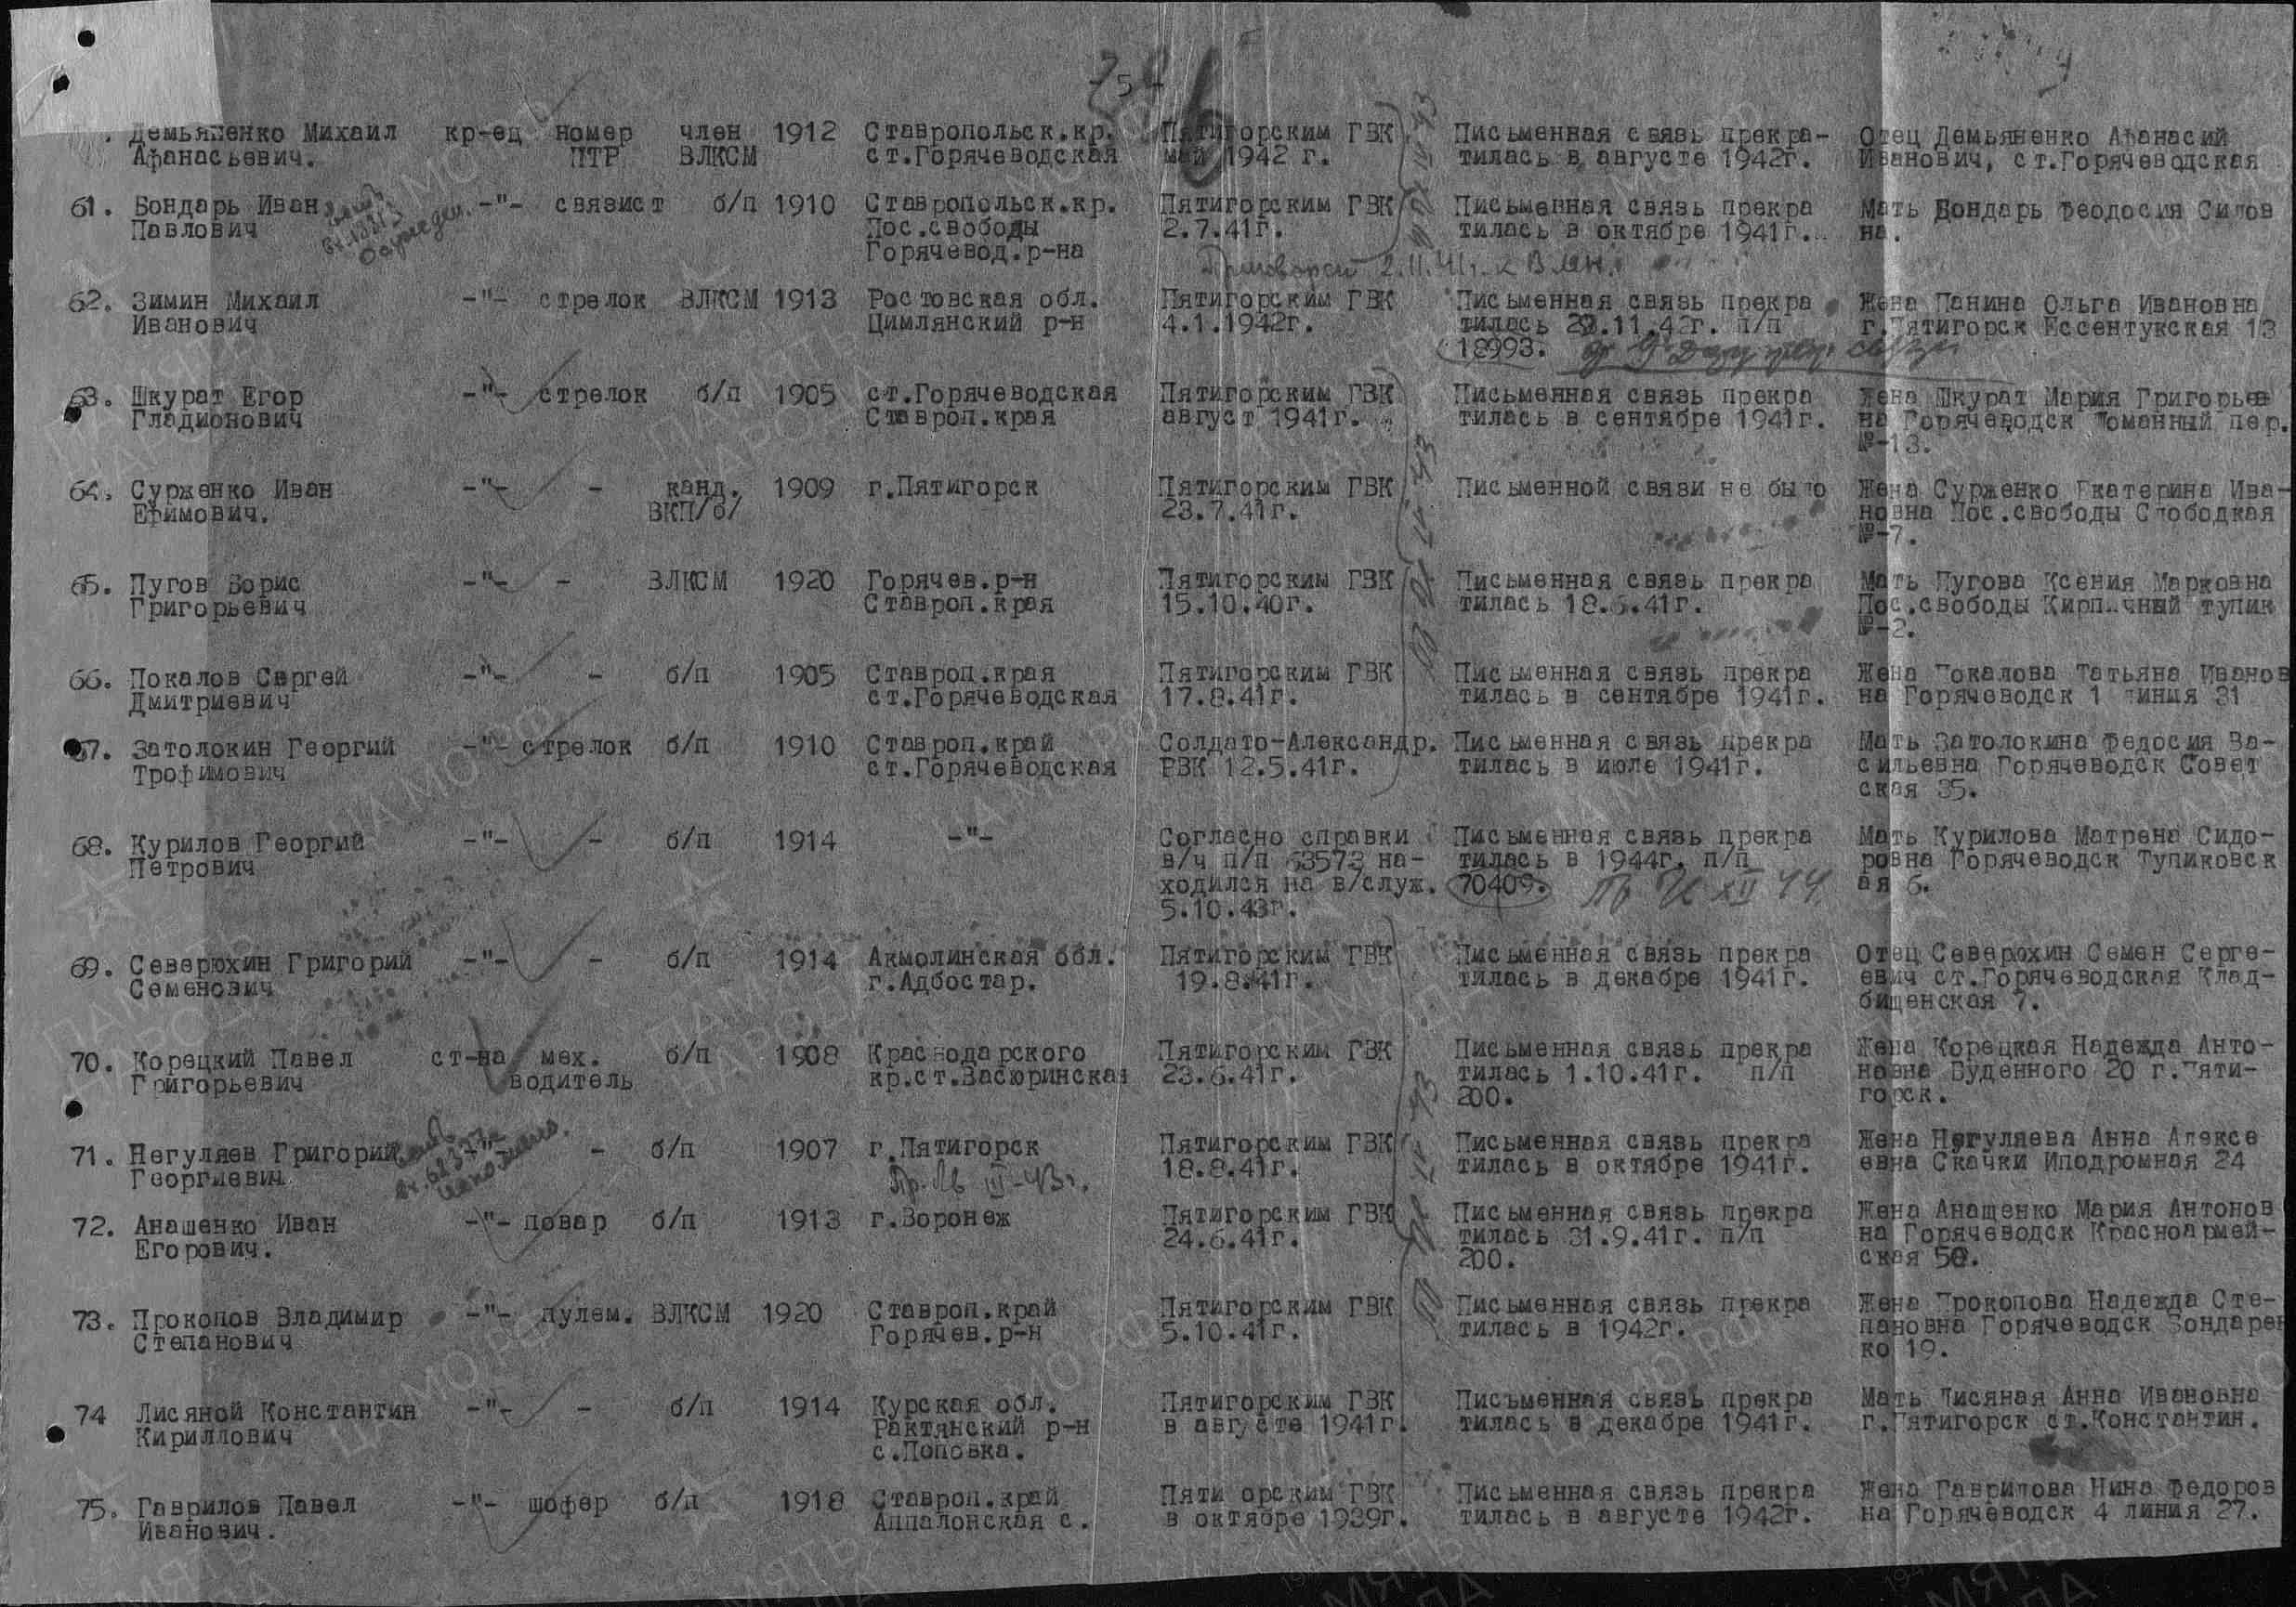 - 5 -
Демьяненко Михаил кр-ец номер член 1912 Ставропольск.кр. Пятигорским ГВК Письменная связь прекра- Отец Демьяненко Афанасий
Афанасьевич. ПТР ВЛКСМ ст.Горячеводская май 1942 г. тилась в августе 1942г. Иванович, ст.Горячеводская
61. Бондарь Иван -"- связист б/п 1910 Ставропольск.кр. Пятигорским ГВК Письменная связь прекра Мать Бондарь Феодосия Силов
Павлович Пос.свободы 2.7.41г. тилась в октябре 1941г. на.
Осужден. Горячевод.р-на
2.11.41г. к ВМН.
62. Зимин Михаил -"- стрелок ВЛКСМ 1913 Ростовская обл. Пятигорским ГВК Письменная связь прекра Жена Панина Ольга Ивановна
Иванович Цимлянский р-н 4.1.1942г. тилась 28.11.42г. п/п г.Пятигорск Ессентукская 13
18993.
63. Шкурат Егор -"- стрелок б/п 1905 ст.Горячеводская Пятигорским ГВК Письменная связь прекра Жена Шкурат Мария Григорьев
Гладионович Ставроп.края август 1941г. тилась в сентябре 1941г. на Горячеводск Томанный пер.
№-13.
64. Сурженко Иван -"- - канд. 1909 г.Пятигорск Пятигорским ГВК Письменной связи не было Жена Сурженко Екатерина Ива-
Ефимович. ВКП/б/ 23.7.41г. новна Пос.свободы Слободкая
№-7.
65. Пугов Борис -"- - ВЛКСМ 1920 Горячев.р-н Пятигорским ГВК Письменная связь прекра Мать Пугова Ксения Марковна
Григорьевич Ставроп.края 15.10.40г. тилась 18.6.41г. Пос.свободы Кирпичный тупик
№-2.
66. Покалов Сергей -"- - б/п 1905 Ставроп.края Пятигорским ГВК Письменная связь прекра Жена Покалова Татьяна Иванов
Дмитриевич ст.Горячеводская 17.8.41г. тилась в сентябре 1941г. на Горячеводск 1 линия 31
67. Затолокин Георгий -"- стрелок б/п 1910 Ставроп.край Солдато-Александр. Письменная связь прекра Мать Затолокина Федосия Ва-
Трофимович ст.Горячеводская РВК 12.5.41г. тилась в июле 1941г. сильевна Горячеводск Совет
ская 35.
68. Курилов Георгий -"- - б/п 1914 -"- Согласно справки Письменная связь прекра Мать Курилова Матрена Сидо-
Петрович в/ч п/п 63573 на- тилась в 1944г. п/п ровна Горячеводск Тупиковск
ходился на в/служ. 70409. XII 44 ая 6.
5.10.43г.
69. Северюхин Григорий -"- - б/п 1914 Акмолинская обл. Пятигорским ГВК Письменная связь прекра Отец Северюхин Семен Серге-
Семенович г.Адбостар. 19.8.41г. тилась в декабре 1941г. евич ст.Горячеводская Клад-
бищенская 7.
70. Корецкий Павел ст-на мех. б/п 1908 Краснодарского Пятигорским ГВК Письменная связь прекра Жена Корецкая Надежда Анто-
Григорьевич водитель кр.ст.Васюринская 23.6.41г. тилась 1.10.41г. п/п новна Буденного 20 г.Пяти-
200. горск.
71. Негуляев Григорий - б/п 1907 г.Пятигорск Пятигорским ГВК Письменная связь прекра Жена Негуляева Анна Алексе
Георгиевич III-43г. 18.8.41г. тилась в октябре 1941г. евна Скачки Иподромная 24
72. Анашенко Иван -"- повар б/п 1913 г.Воронеж Пятигорским ГВК Письменная связь прекра Жена Анащенко Мария Антонов
Егорович. 24.6.41г. тилась 31.9.41г. п/п на Горячеводск Красноармей-
200. ская 50.
73. Прокопов Владимир -"- пулем. ВЛКСМ 1920 Ставроп.край Пятигорским ГВК Письменная связь прекра Жена Прокопова Надежда Сте-
Степанович Горячев.р-н 5.10.41г. тилась в 1942г. пановна Горячеводск Бондарен
ко 19.
74 Лисяной Константин -"- - б/п 1914 Курская обл. Пятигорским ГВК Письменная связь прекра Мать Лисяная Анна Ивановна
Кириллович Рактянский р-н в августе 1941г. тилась в декабре 1941г. г.Пятигорск ст.Константин.
с.Поповка.
75. Гаврилов Павел -"- шофер б/п 1918 Ставроп.край Пяти орским ГВК Письменная связь прекра Жена Гаврилова Нина Федоров
Иванович. Аппалонская с. в октябре 1939г. тилась в августе 1942г. на Горячеводск 4 линия 27.